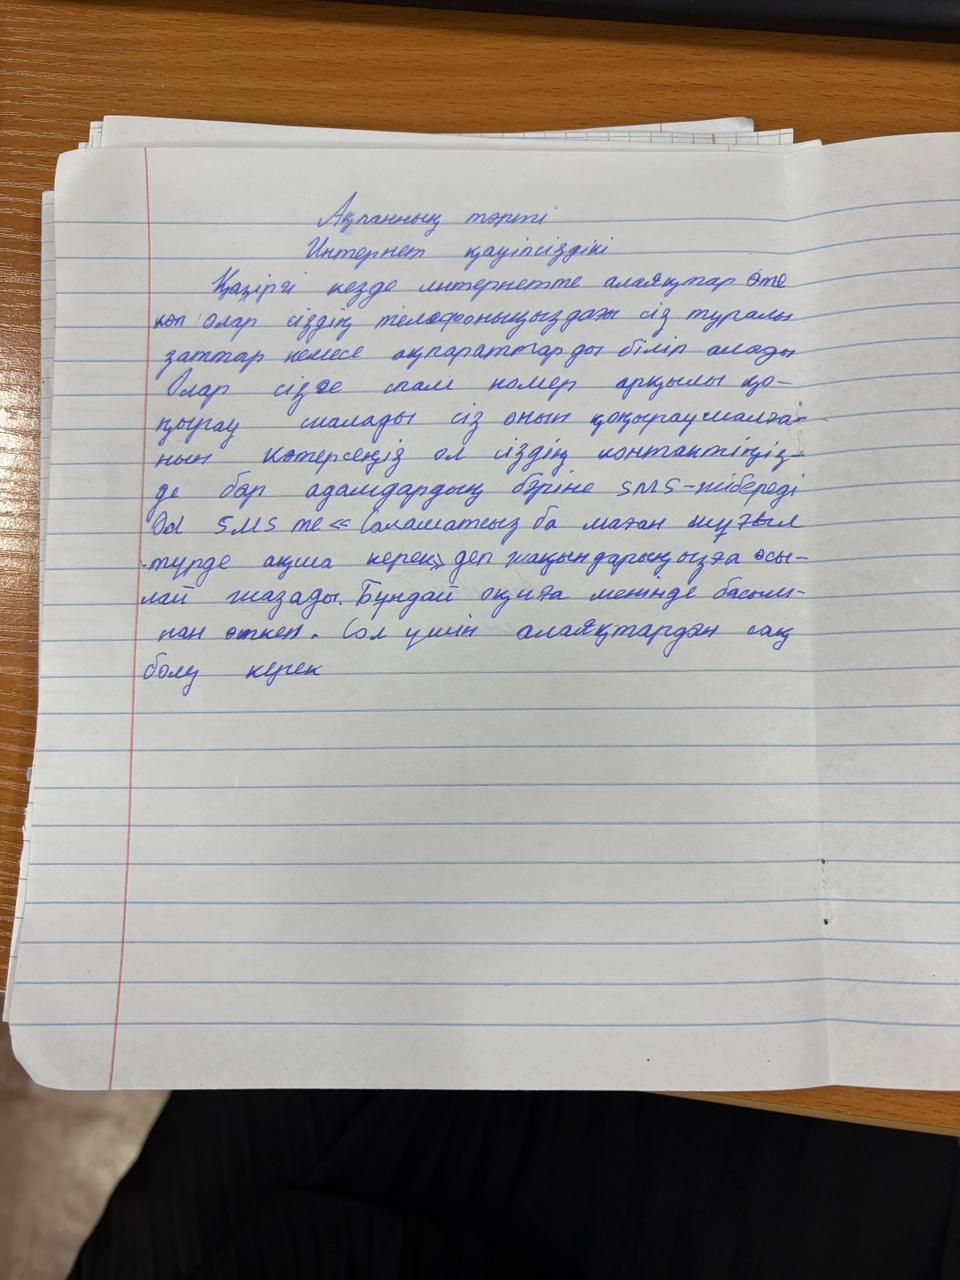 Ақпанның төрті
Интернет қауіпсіздікі
Қазіргі кезде интернетте алаяқтар өте
көп Олар сіздің телефоныңыздағы сіз туралы
заттар немесе ақпараттарды біліп алады
Олар сізге спам номер арқылы қо-
ңырау шалады сіз онын қоңырау шалға-
нын көтерсеңіз ол сіздің контактіңіз-
де бар адамдардың бәріне SMS-жібереді
Ол SMS те « Саламатсыз ба маған шұғыл
түрде ақша керек» деп жақындарыңызға осы-
лай жазады. Бұндай оқиға менінде басым-
нан өткен. Сол үшін алаяқтардан сақ
болу керек